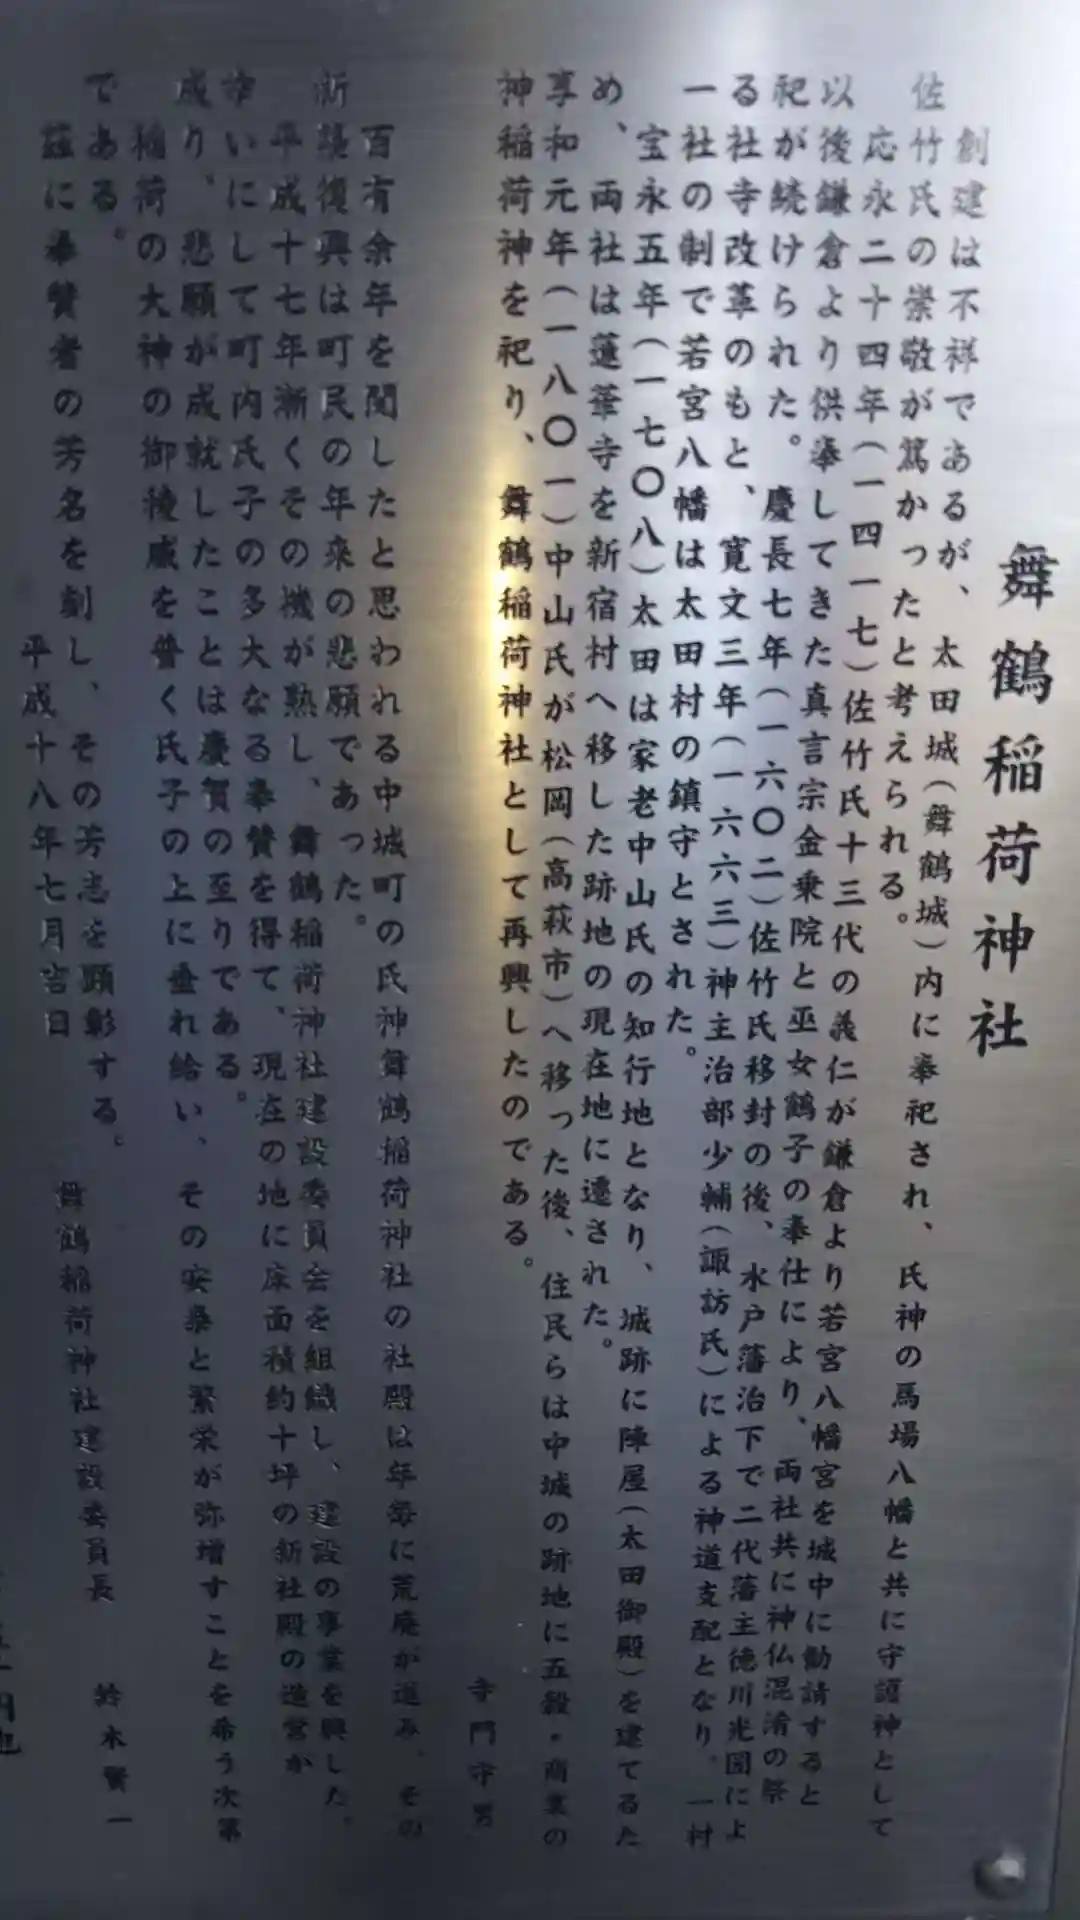 舞鶴稲荷神社
創建は不祥であるが、太田城(舞鶴城)内に奉祀され、氏神の馬場八幡と共に守護神として
佐竹氏の崇敬が篤かったと考えられる。
応永二十四年(一四一七)佐竹氏十三代の義仁が鎌倉より若宮八幡宮を城中に勧請すると
以後鎌倉より供奉してきた真言宗金乗院と巫女鶴子の奉仕により、両社共に神仏混淆の祭
祀が続けられた。慶長七年(一六〇二)佐竹氏移封の後、水戸藩治下で二代藩主徳川光圀によ
る社寺改革のもと、寛文三年(一六六三)神主治部少輔(諏訪氏)による神道支配となり。一村
一社の制で若宮八幡は太田村の鎮守とされた。
宝永五年(一七〇八)太田は家老中山氏の知行地となり、城跡に陣屋(太田御殿)を建てるた
め、両社は蓮華寺を新宿村へ移した跡地の現在地に遷された。
享和元年(一八〇一)中山氏が松岡(高萩市)へ移った後、住民らは中城の跡地に五穀・商業の
神稲荷神を祀り、舞鶴稲荷神社として再興したのである。
寺門守男
百有余年を閲したと思われる中城町の氏神舞鶴稲荷神社の社殿は年毎に荒廃が進み、その
新築復興は町民の年来の悲願であった。
平成十七年漸くその機が熟し、舞鶴稲荷神社建設委員会を組織し、建設の事業を興した。
幸いにして町内氏子の多大なる奉賛を得て、現在の地に床面積約十坪の新社殿の造営が
成り、悲願が成就したことは慶賀の至りである。
稲荷の大神の御稜威を普く氏子の上に垂れ給い、その安泰と繁栄が弥増すことを希う次第
である。
茲に奉賛者の芳名を刻し、その芳志を顕彰する。
平成十八年七月吉日
舞鶴稲荷神社建設委員長 鈴木賢一